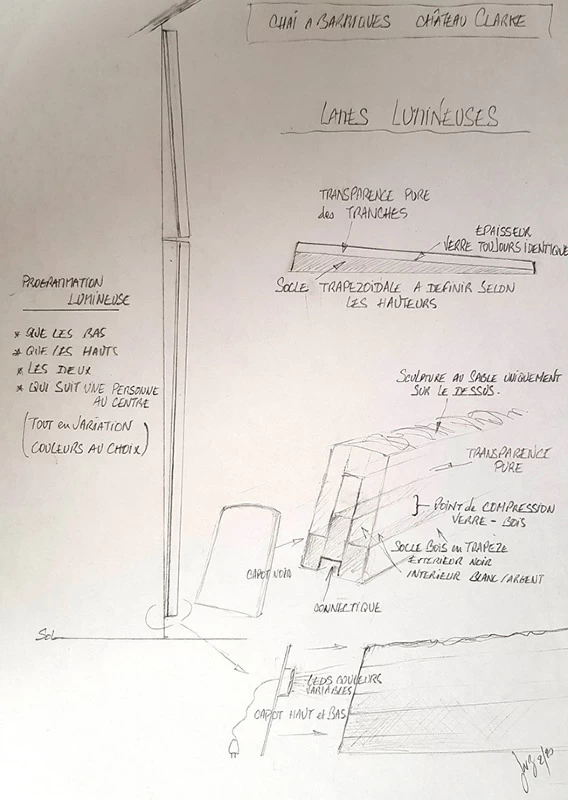 CHAI A BARRIQUES CHÂTEAU CLARKE
LAMES LUMINEUSES
TRANSPARENCE PURE
des TRANCHES
EPAISSEUR
VERRE TOUJOURS IDENTIQUE
SOCLE TRAPEZOÏDALE A DEFINIR SELON
LES HAUTEURS
PROGRAMMATION
LUMINEUSE
* QUE LES BAS
* QUE LES HAUTS
* LES DEUX
* QUI SUIT UNE PERSONNE
AU CENTRE
(TOUT en VARIATION
COULEURS AU CHOIX)
SCULPTURE AU SABLE UNIQUEMENT
SUR LE DESSUS.
TRANSPARENCE
PURE
} POINT de COMPRESSION
VERRE - BOIS
SOCLE BOIS en TRAPEZE
EXTERIEUR NOIR
INTERIEUR BLANC/ARGENT
CAPOT NOIR
CONNECTIQUE
SOL
LEDS COULEURS
VARIABLES
CAPOT HAUT et BAS